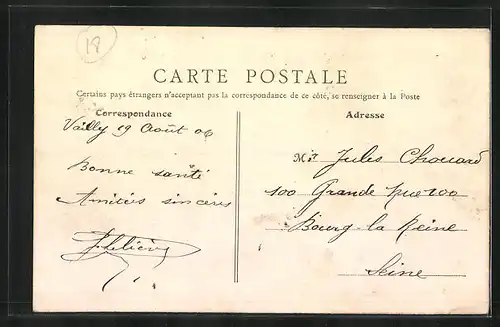 18
CARTE POSTALE
Certains pays étrangers n'acceptant pas la correspondance de ce côté, se renseigner à la Poste
Correspondance
Vailly 19 Août 06
Bonne santé
Amitiés sincères
Adresse
Jules Chouard
100 Grande Rue 100
Bourg-la Reine
Seine